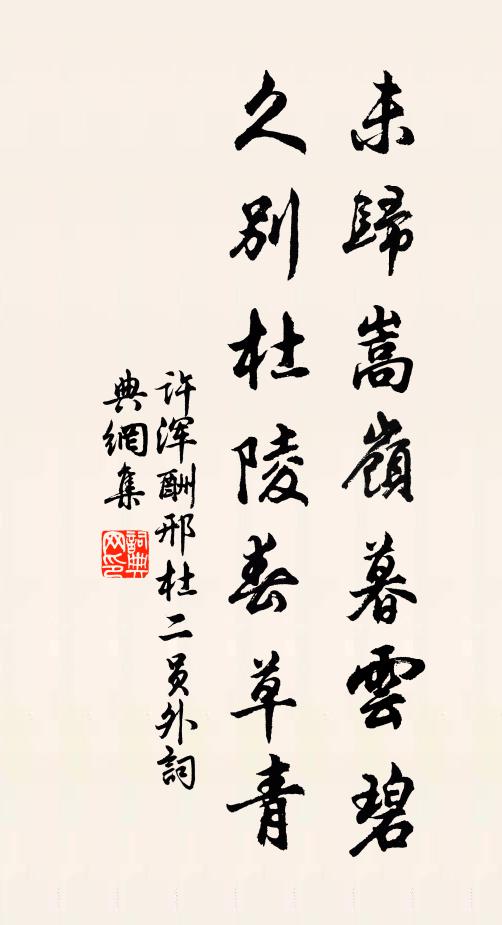 未歸嵩嶺暮雲碧
久别杜陵春草青
许浑酬邢杜二员外詞
典網集
詞典
网印